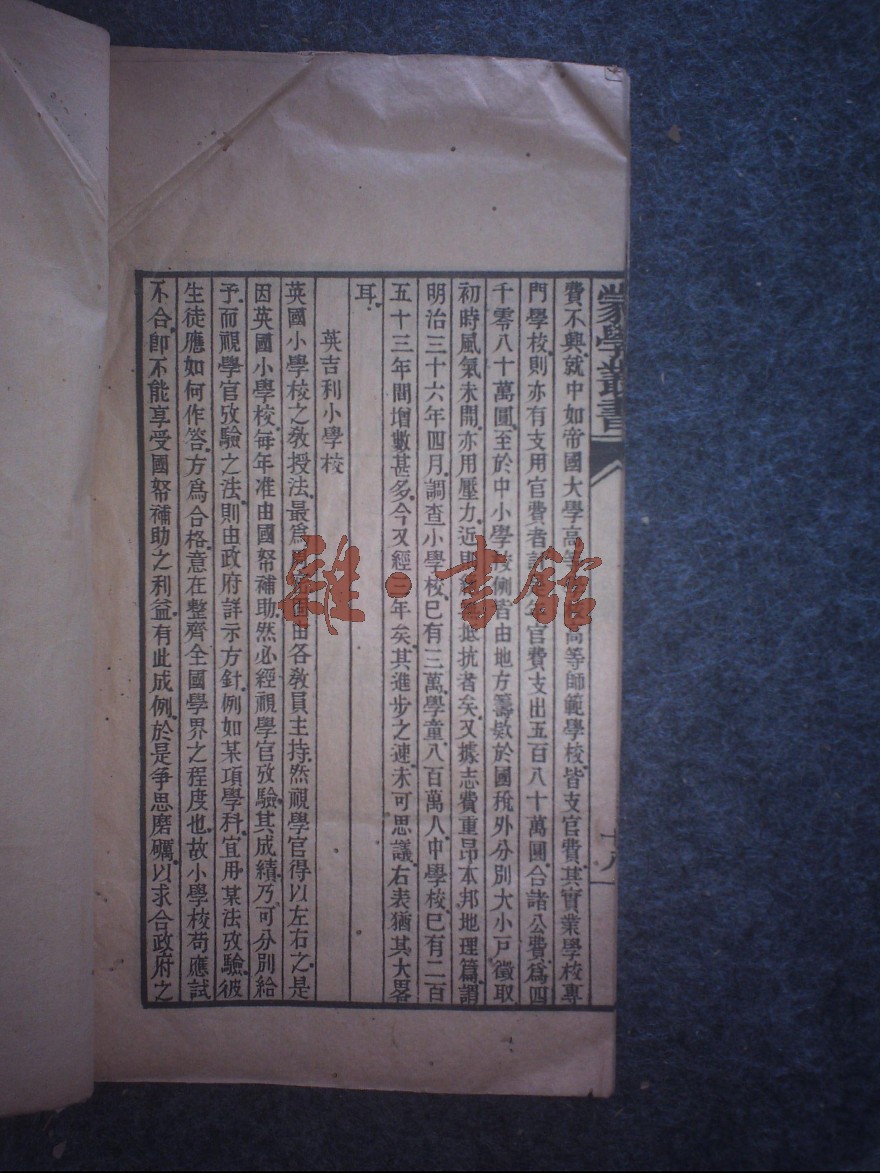 蒙學叢書
十八
費不興就中如帝國大學高等 高等師範學校皆支官費其實業學校專
門學校則亦有支用官費者 官費支出五百八十萬圓合諸公費爲四
千零八十萬圓至於中小學校例皆由地方籌款於國稅外分別大小戸徵取
初時風氣未開亦用壓力近則 抵抗者矣又據志費重昂本邦地理篇謂
明治三十六年四月調查小學校已有三萬學童八百萬人中學校已有二百
五十三年間增數甚多今又經三年矣其進步之速未可思議右表猶其大畧
耳
英吉利小學校
英國小學校之教授法最爲 由各教員主持然視學官得以左右之是
因英國小學校每年准由國帑補助然必經視學官攷驗其成績乃可分別給
予而視學官攷驗之法則由政府詳示方針例如某項學科宜用某法攷驗彼
生徒應如何作答方爲合格意在整齊全國學界之程度也故小學校苟應試
不合卽不能享受國帑補助之利益有此成例於是爭思磨礪以求合政府之
雜·書館